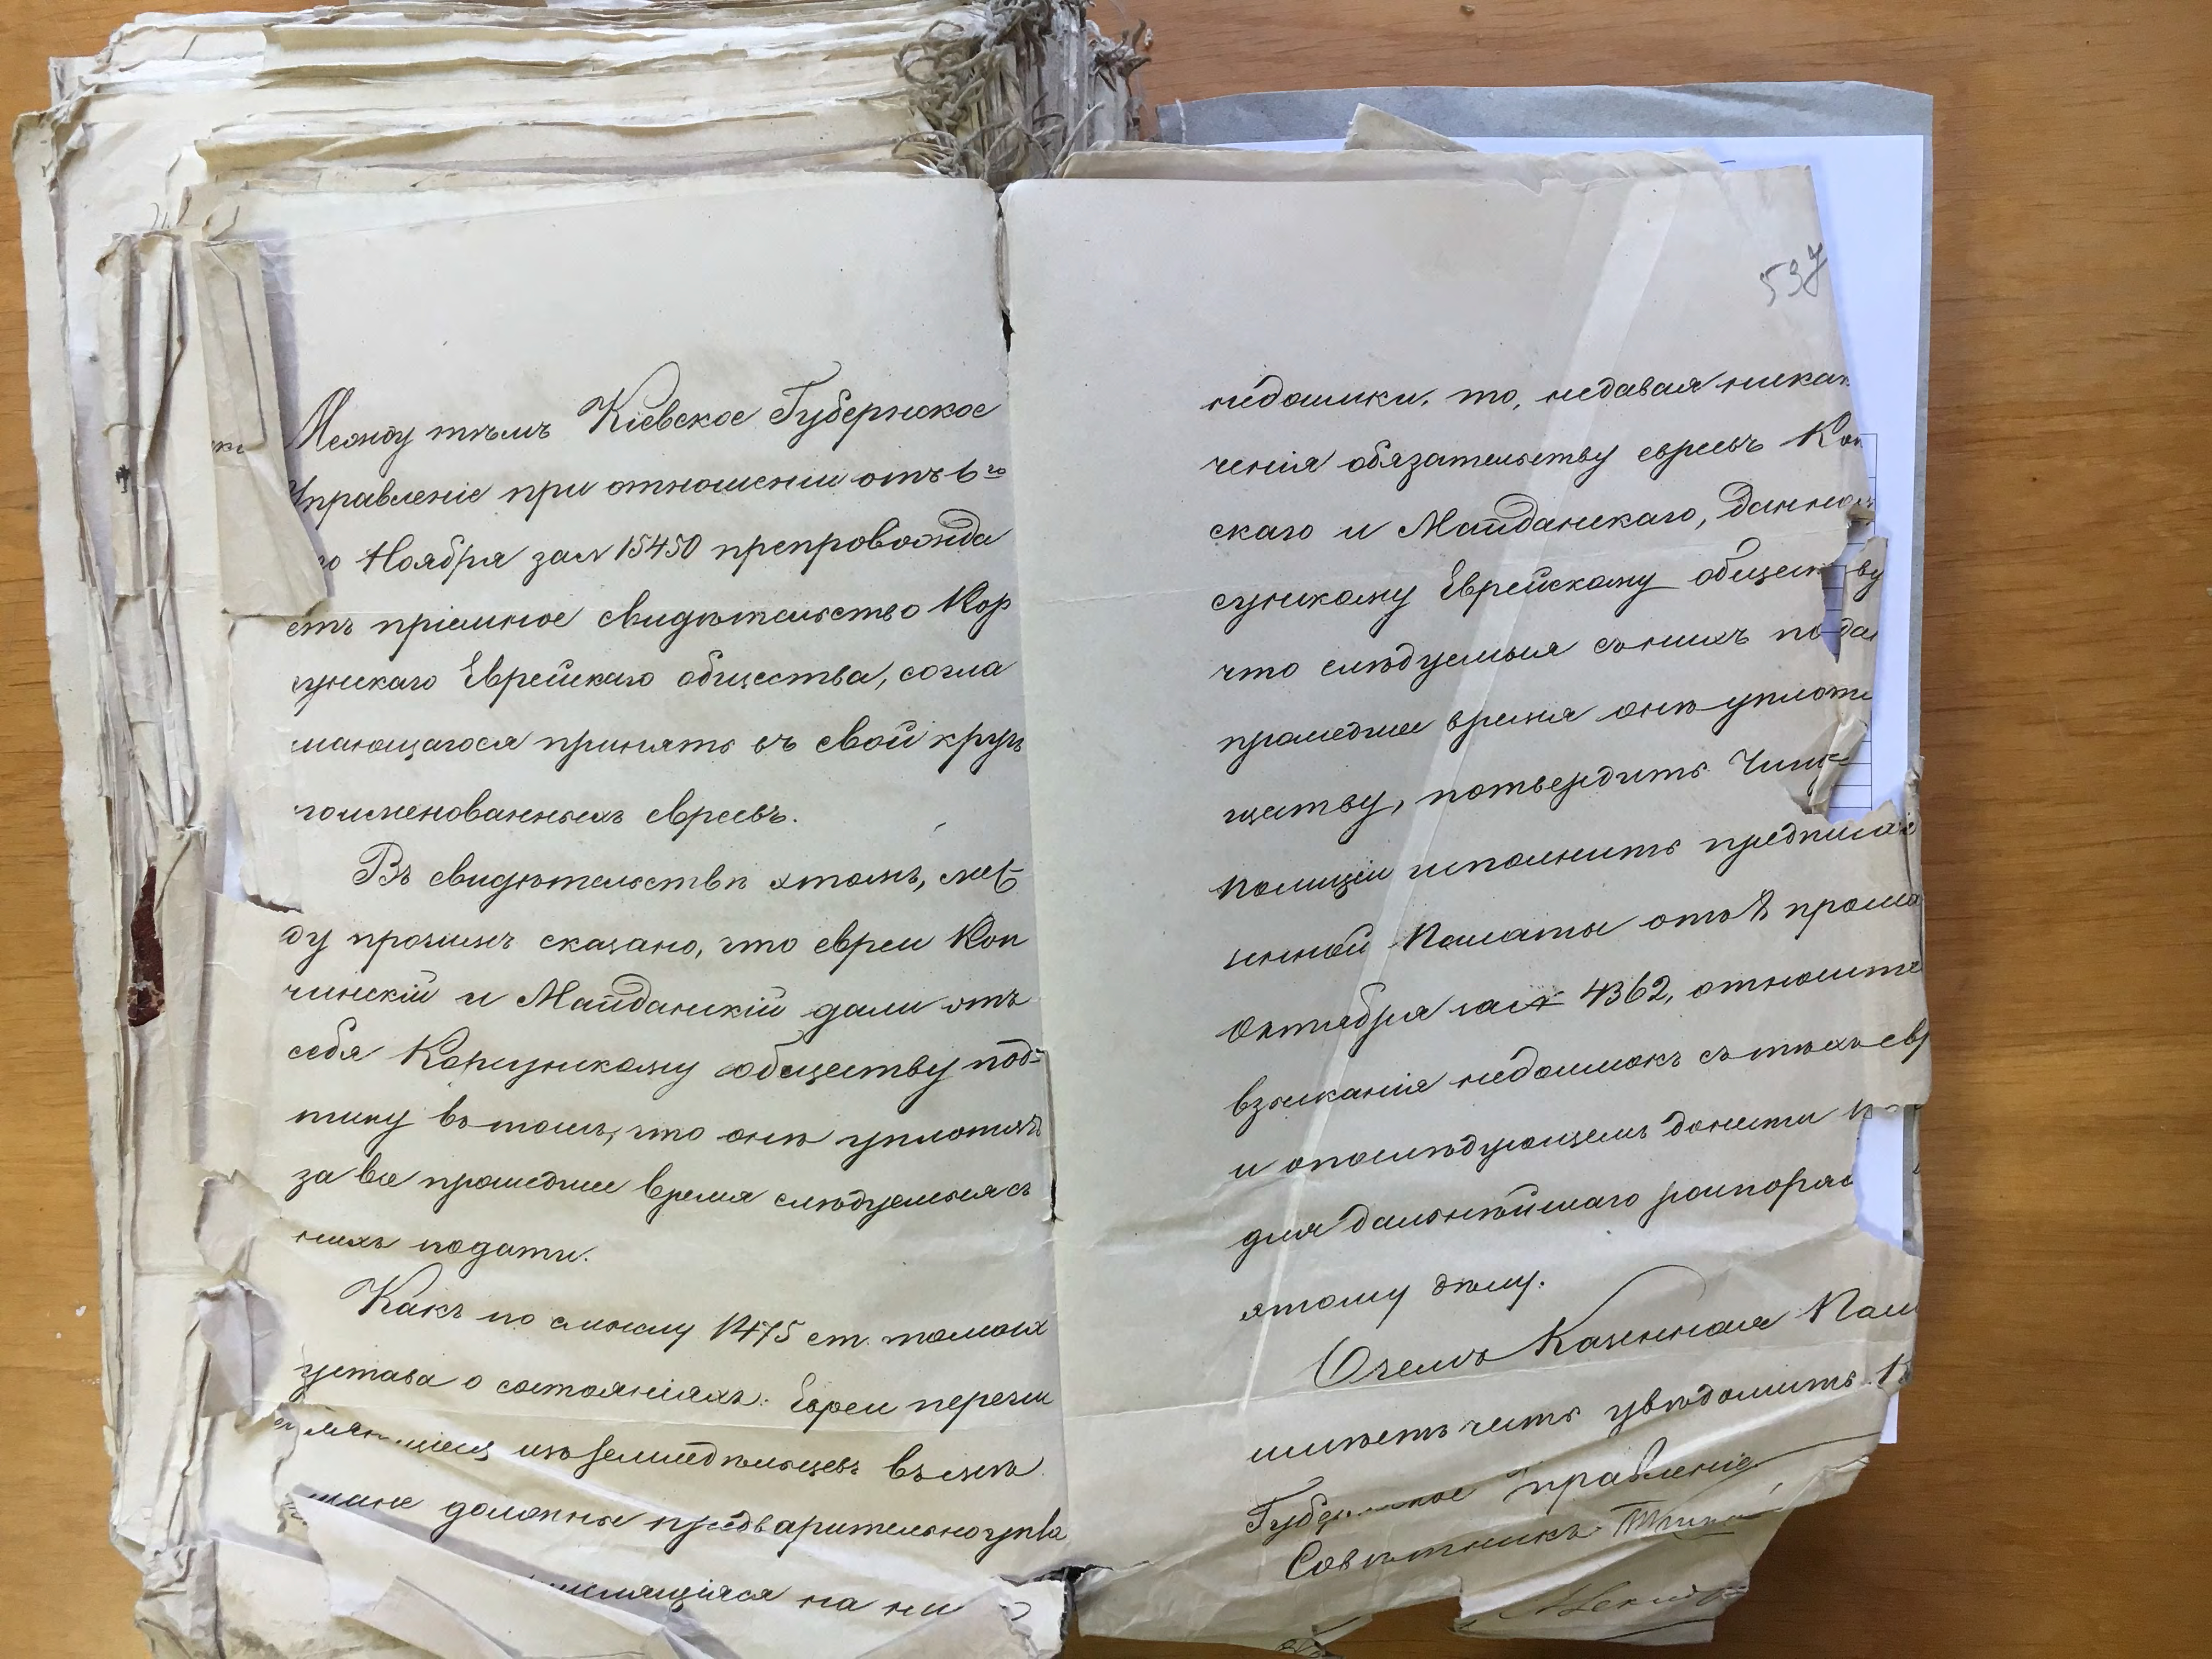 Между тѣмъ Кіевское Губернское
Управленіе при отношеніи отъ 6го
го Ноября за № 15450 препровожда
етъ пріемное свидѣтельство Кор
сунскаго Еврейскаго общества, согла
шающагося принять въ свой кругъ
поименованныхъ евреевъ.
Въ свидѣтельствѣ этомъ, меж
ду прочимъ сказано, что евреи Коп
чинскій и Майданскій дали отъ
себя Корсунскому обществу под=
писку въ томъ, что онѣ уплотятъ
за все прошедшее время слѣдуемыя съ
нихъ подати.
Какъ по смыслу 1475 ст. тома IX
устава о состояніяхъ: Евреи перечи
изъ земледѣльцевъ въ мѣ
щане должны предварительно упла
числящіяся на ни
537
недоимки, то, недавая никак
ченія обязательству евреевъ Коп
скаго и Майданскаго, данно
сунскому Еврейскому обществу
что слѣдуемыя съ нихъ пода
прошедшее время онѣ уплотя
ществу, потвердить Чиги
Полиціи исполнить предписа
енной Палаты отъ 8 прошл
Октября за № 4362, относите
взысканія недоимокъ съ тѣхъ евр
и опослѣдующемъ донести
для дальнѣйшаго распоряж
этому дѣлу.
О чемъ Казенная Пал
имѣетъ честь увѣдомить К
Губернское Правленіе
Совѣтникъ